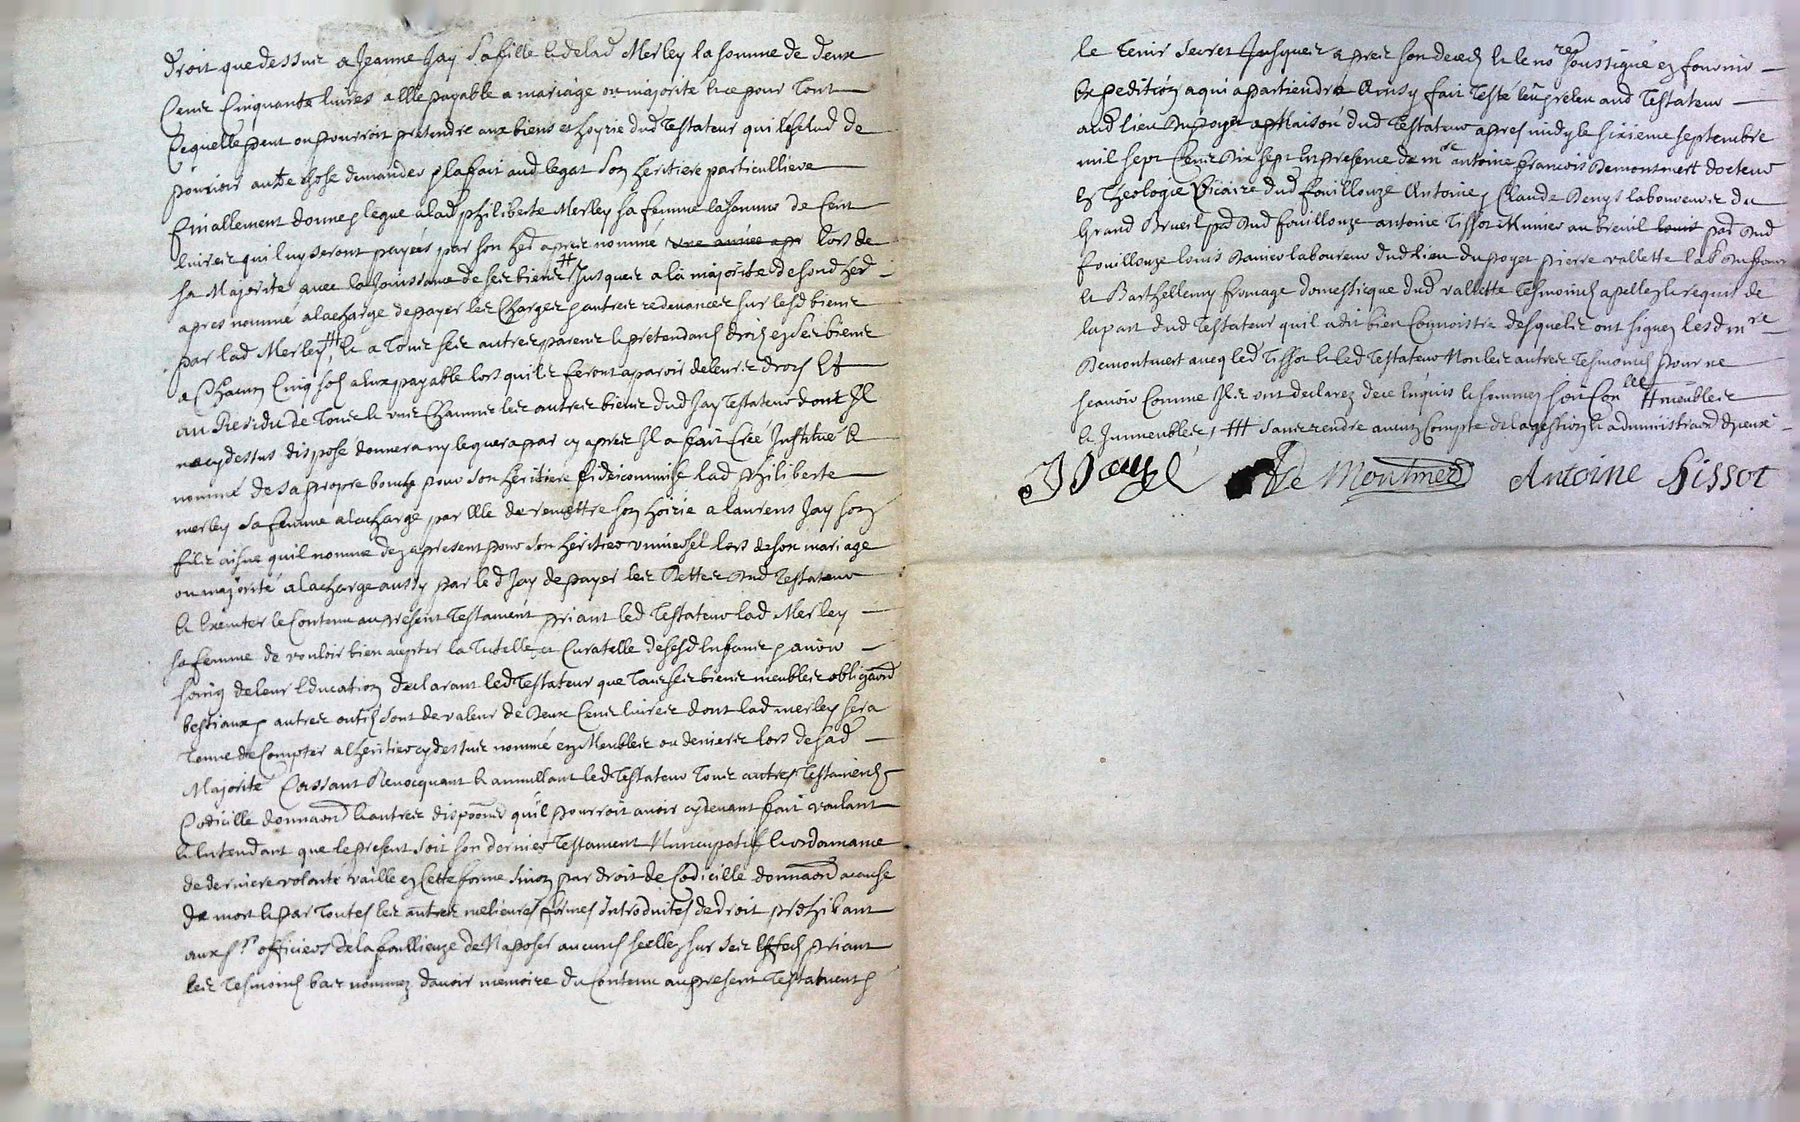 droit que dessus a Jeanne Jay sa fille & de lad Merley la somme de deux
Cens Cinquante livres a Elle payable a mariage ou majorité & ce pour Tout
Ce quelle peut ou pourroit pretendre aux biens et hoyrie dud Testateur qui lesclud de
pouvoir autre chose demander & la fait aud legat son heritiere particulliere
finallement donne & legue a lad philiberte Merley sa femme la somme de Cent
livres qui luy seront payées par son her apres nommé une année apr lors de
sa Majorité avec la Jouissance de ses biens # Jusques a la majorité de sond her
apres nommé a la charge de payer les Charges & autres redevances sur lesd biens
par lad Merley # & a Tous ses autres parens & pretendans droit en ses biens
a Chacun Cinq sols a Eux payable lors quils feront aparoir de leurs drois Et
au Residu de Tous & uns Chacuns les autres biens dud Jay Testateur dont Il
na cy dessus disposé donnera ny leguera par cy apres Il a fait Créé Institué &
nommé de sa propre bouche pour son heritiere fideicommise lad philiberte
merley sa femme a la charge par Elle de remettre son hoirie a laurens Jay son
fils aisne quil nomme dez a present pour son heritier universel lors de son mariage
ou majorité a la charge aussy par led Jay de payer les dettes dud Testateur
& Executer le Contenu au present Testament priant led Testateur lad Merley
sa femme de vouloir bien accepter la Tutelle et Curatelle de sesd Enfans & avoir
soing de leur Education declarant led Testateur que Tous ses biens meubles obligaons
bestiaux & autres outils sont de valeur de deux Cens livres dont lad merley sera
Tenue de Compter a lheritier cy dessus nommé en Meubles ou deniers lors de sad
Majorité Cassant Revocquant & annullant led Testateur Tous autres Testamens
Codicille donnaons & autres dispoons quil pourroit avoir cy devant fait voulant
& Entendant que le present soit son dernier Testament Nuncupatif & ordonnance
de derniere volonte vaille en Cette forme sinon par droit de Codicille donnaon a cause
de mort & par Toutes les autres melieures formes Introduites de droit prohibant
aux srs officiers de la foullieuze de Naposer aucuns scellez sur ses Effects priant
les Tesmoins bas nommez davoir memoire du Contenu au present Testament &
le Tenir secret Jusques apres son decedz & le nore soussigné en fournir
Expedition a qui apartiendra Ainsy fait Testé leu & releu aud Testateur
aud lieu du poyet a maison dud Testateur apres midy le sixieme septembre
mil sept Cens dix sept En presence de mre antoine francois demontmert docteur
En Theologie Vicaire dud fouillouze Antoine & Claude denys laboureurs du
Grand Brueil psse dud fouillouze antoine Tissot Munier au breuil louis psse dud
fouillouze louis danier laboureur dud lieu du poyet pierre vallette lab
& Barthellemy fromage domesticque dud vallette Tesmoins apellez & requis de
la part dud Testateur quil a dit bien Connoistre desquels ont signez lesd mre
Demontmert avec led Tissot & led Testateur Non les autres Tesmoins pour ne
scavoir Comme Ils ont declarez de ce Enquis & sommez soit Conllé # meubles
& Immeubles, ### sans rendre aucun Compte de la gestion & administraon dyeux
J Jay De Montmert Antoine Tissot